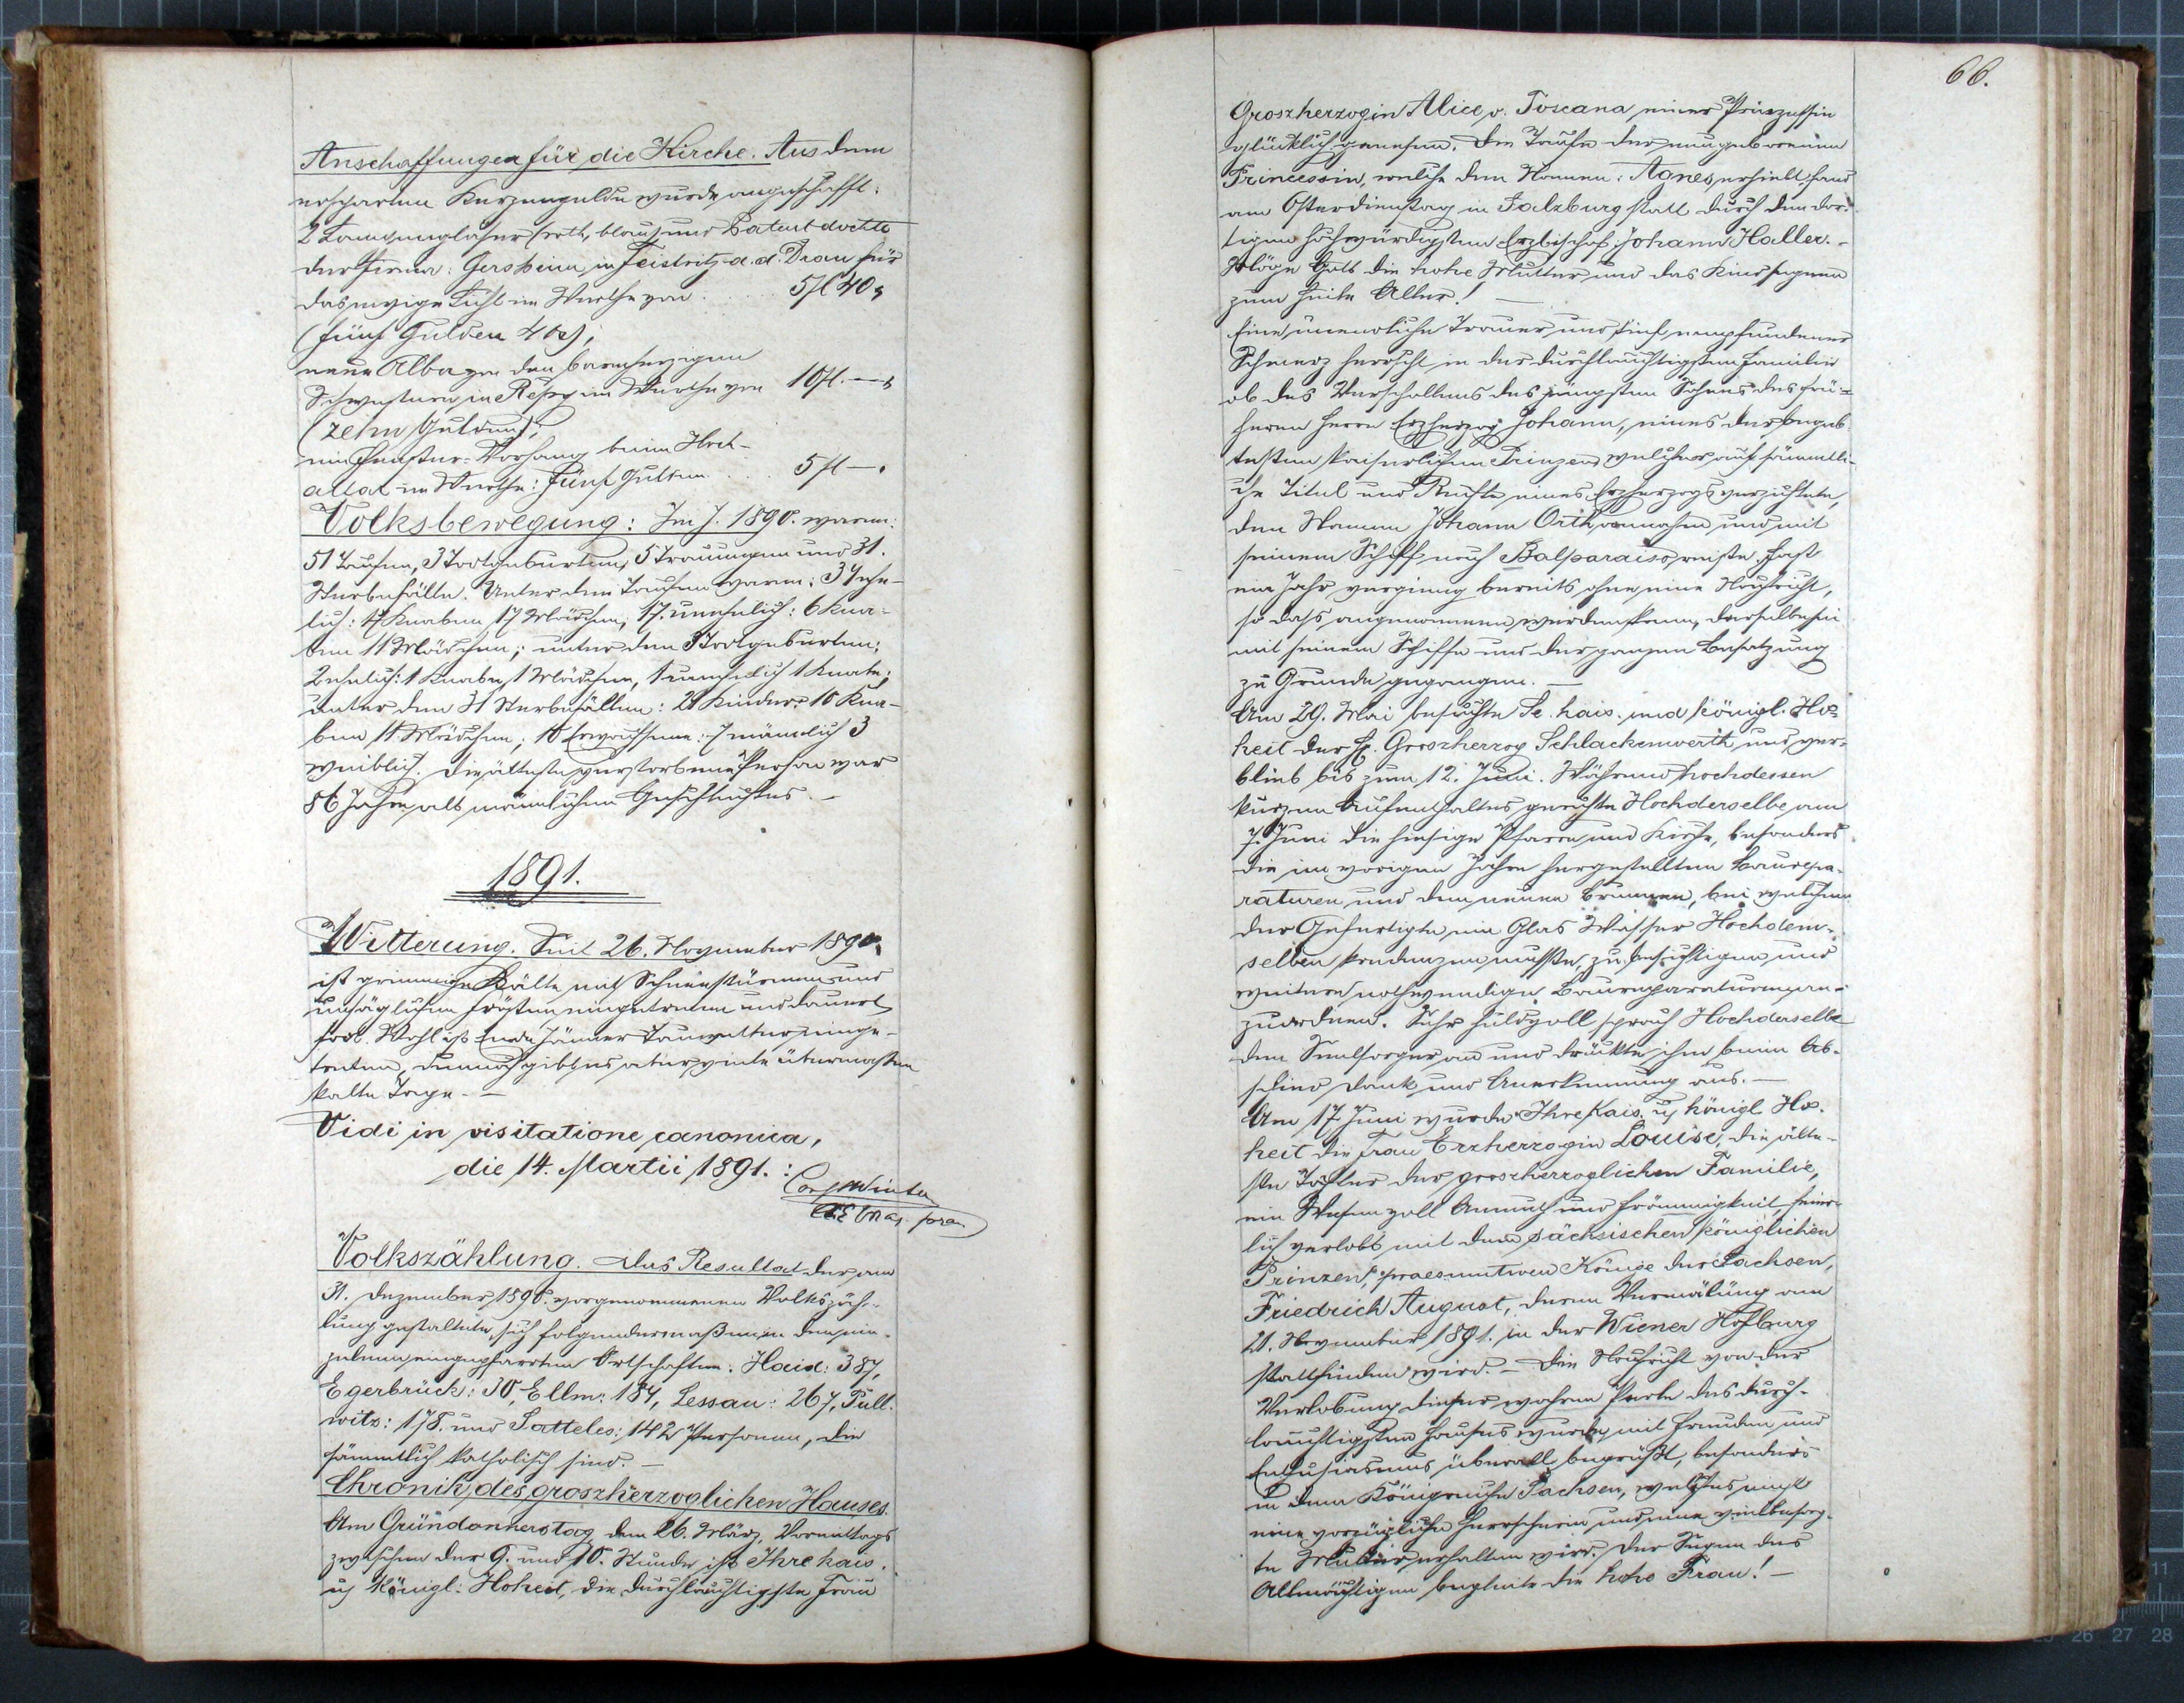 Anschaffungen für die Kirche. Aus dem
ersparten Kerzengelde wurde angeschafft:
2 Lampengläser (roth, blau) und Patentdochte
der Firma: in Feistritz a. d. Drau für
das ewige Licht im Werthe von . . . 5 fl 40
(fünf Gulden 40);
neue Alba von den barmherzigen
Schwestern in Repy im Werthe von 10 fl. —
(zehn Gulden);
ein Fenster-Vorhang beim Hoch-
altar im Werthe: fünf Gulden . . . 5 fl —.
Volksbewegung: Im J. 1890. waren:
51 Taufen, 3 Todtgeburten, 5 Trauungen und 31.
Sterbefälle. Unter den Taufen waren: 34 ehe-
lich: 17 Knaben, 17 Mädchen, 17. unehelich: 6 Kna-
ben 11 Mädchen; unter den 3 Todtgeburten:
2 ehelich: 1 Knabe, 1 Mädchen, 1 unehelich 1 Knabe;
unter den 31 Sterbefällen: 21 Kinder: 10 Kna-
ben 11. Mädchen; 10 Erwachsene: 7 männlich 3
weiblich. Die älteste verstorbene Person war
86 Jahre alt männlichen Geschlechtes. —
1891.
Witterung. Seit 26. November 1890.
ist grimmige Kälte mit Schneestürmen und
unsäglichen Frösten eingetreten und dauert
fort. Wohl ist Ende Jänner Tauwetter einge-
treten, dennoch gibt es aber viele übermassen
kalte Tage. —
Vidi in visitatione canonica,
die 14. Martii 1891. :
Winter
Volkszählung. Das Resultat der am
31. Dezember 1890. vorgenommenen Volkszäh-
lung gestaltete sich folgendermaßen in den ein-
zelnen eingepfarrten Ortschaften: Haid: 387,
Egerbrück: 30, Ellm: 184, Lessau: 267, Pull-
witz: 178. und Satteles: 142 Personen, die
sämmtlich katholisch sind. —
Chronik des groszherzoglichen Hauses.
Am Gründonnerstag den 26. März, Vormittags
zwischen der 9. und 10. Stunde ist Ihre kais.
u königl: Hoheit, die durchlauchtigste Frau
66.
Groszherzogin Alice v. Toscana einer Prinzessin
glücklich genesen. Die Taufe der neugeborenen
Princessin, welche den Namen: Agnes erhielt, fand
am Osterdienstag in Salzburg statt durch den dor-
tigen hochwürdigsten Erzbischof Johann Haller. -
Möge Gott die hohe Mutter und das Kind segnen
zum Alter! —
Eine unendliche Trauer und tief empfundener
Schmerz herrscht in der durchlauchtigsten Familie
ob des Verschollens des jüngsten Sohnes des frü-
heren Herrn Erzherzog Johann, eines der begab-
testen kaiserlichen Prinzen, welcher auf sämmtli-
che Titel und Rechte eines Erzherzogs verzichtete,
den Namen Johann Orth annahm und mit
seinem Schiff nach Valparaiso reiste. Fast
ein Jahr verging bereits ohne eine Nachricht,
so dass angenommen werden kann, derselbe sei
mit seinem Schiffe und der ganzen Besatzung
zu Grunde gegangen. —
Am 29. Mai besuchte Se. kais. und königl. Ho-
heit der H. Groszherzog Schlackenwerth und ver-
blieb bis zum 12. Juni. Während hochdessen
kurzen Aufenthaltes geruhte Hochderselbe am
7. Juni die hiesige Pfarre und Kirche, besonders
die im vorigen Jahre hergestellten Baurepa-
raturen und den neuen Brunnen, bei welchem
der Gefertigte ein Glas Wasser Hochdem-
selben kredenzen musste, zu besichtigen und
weitere nothwendige Baureparaturen an-
zuordnen. Sehr huldvoll sprach Hochderselbe
den Seelsorger an und drückte ihm beim Ab-
schied Dank und Anerkennung aus. —
Am 17 Juni wurde Ihre Kais. u königl Ho-
heit die Frau Erzherzogin Louise, die älte-
ste Tochter der groszherzoglichen Familie,
ein Wesen voll Anmuth und Frömmigkeit, feier-
lich verlobt mit dem sächsischen königlichen
Prinzen, praesumtiven Könige der Sachsen,
Friedrich August, deren Vermälung am
21. November 1891. in der Wiener Hofburg
stattfinden wird. — Die Nachricht von der
Verlobung dieser wahren Perle des durch-
lauchtigsten Hauses wurde mit Freuden und
Enthusiasmus überall begrüßt, besonders
in dem Königreiche Sachsen, welches einst
eine vorzügliche Herrscherin und eine vielbesorg-
te Mutter erhalten wird. Der Segen des
Allmächtigen begleite die hohe Frau! —